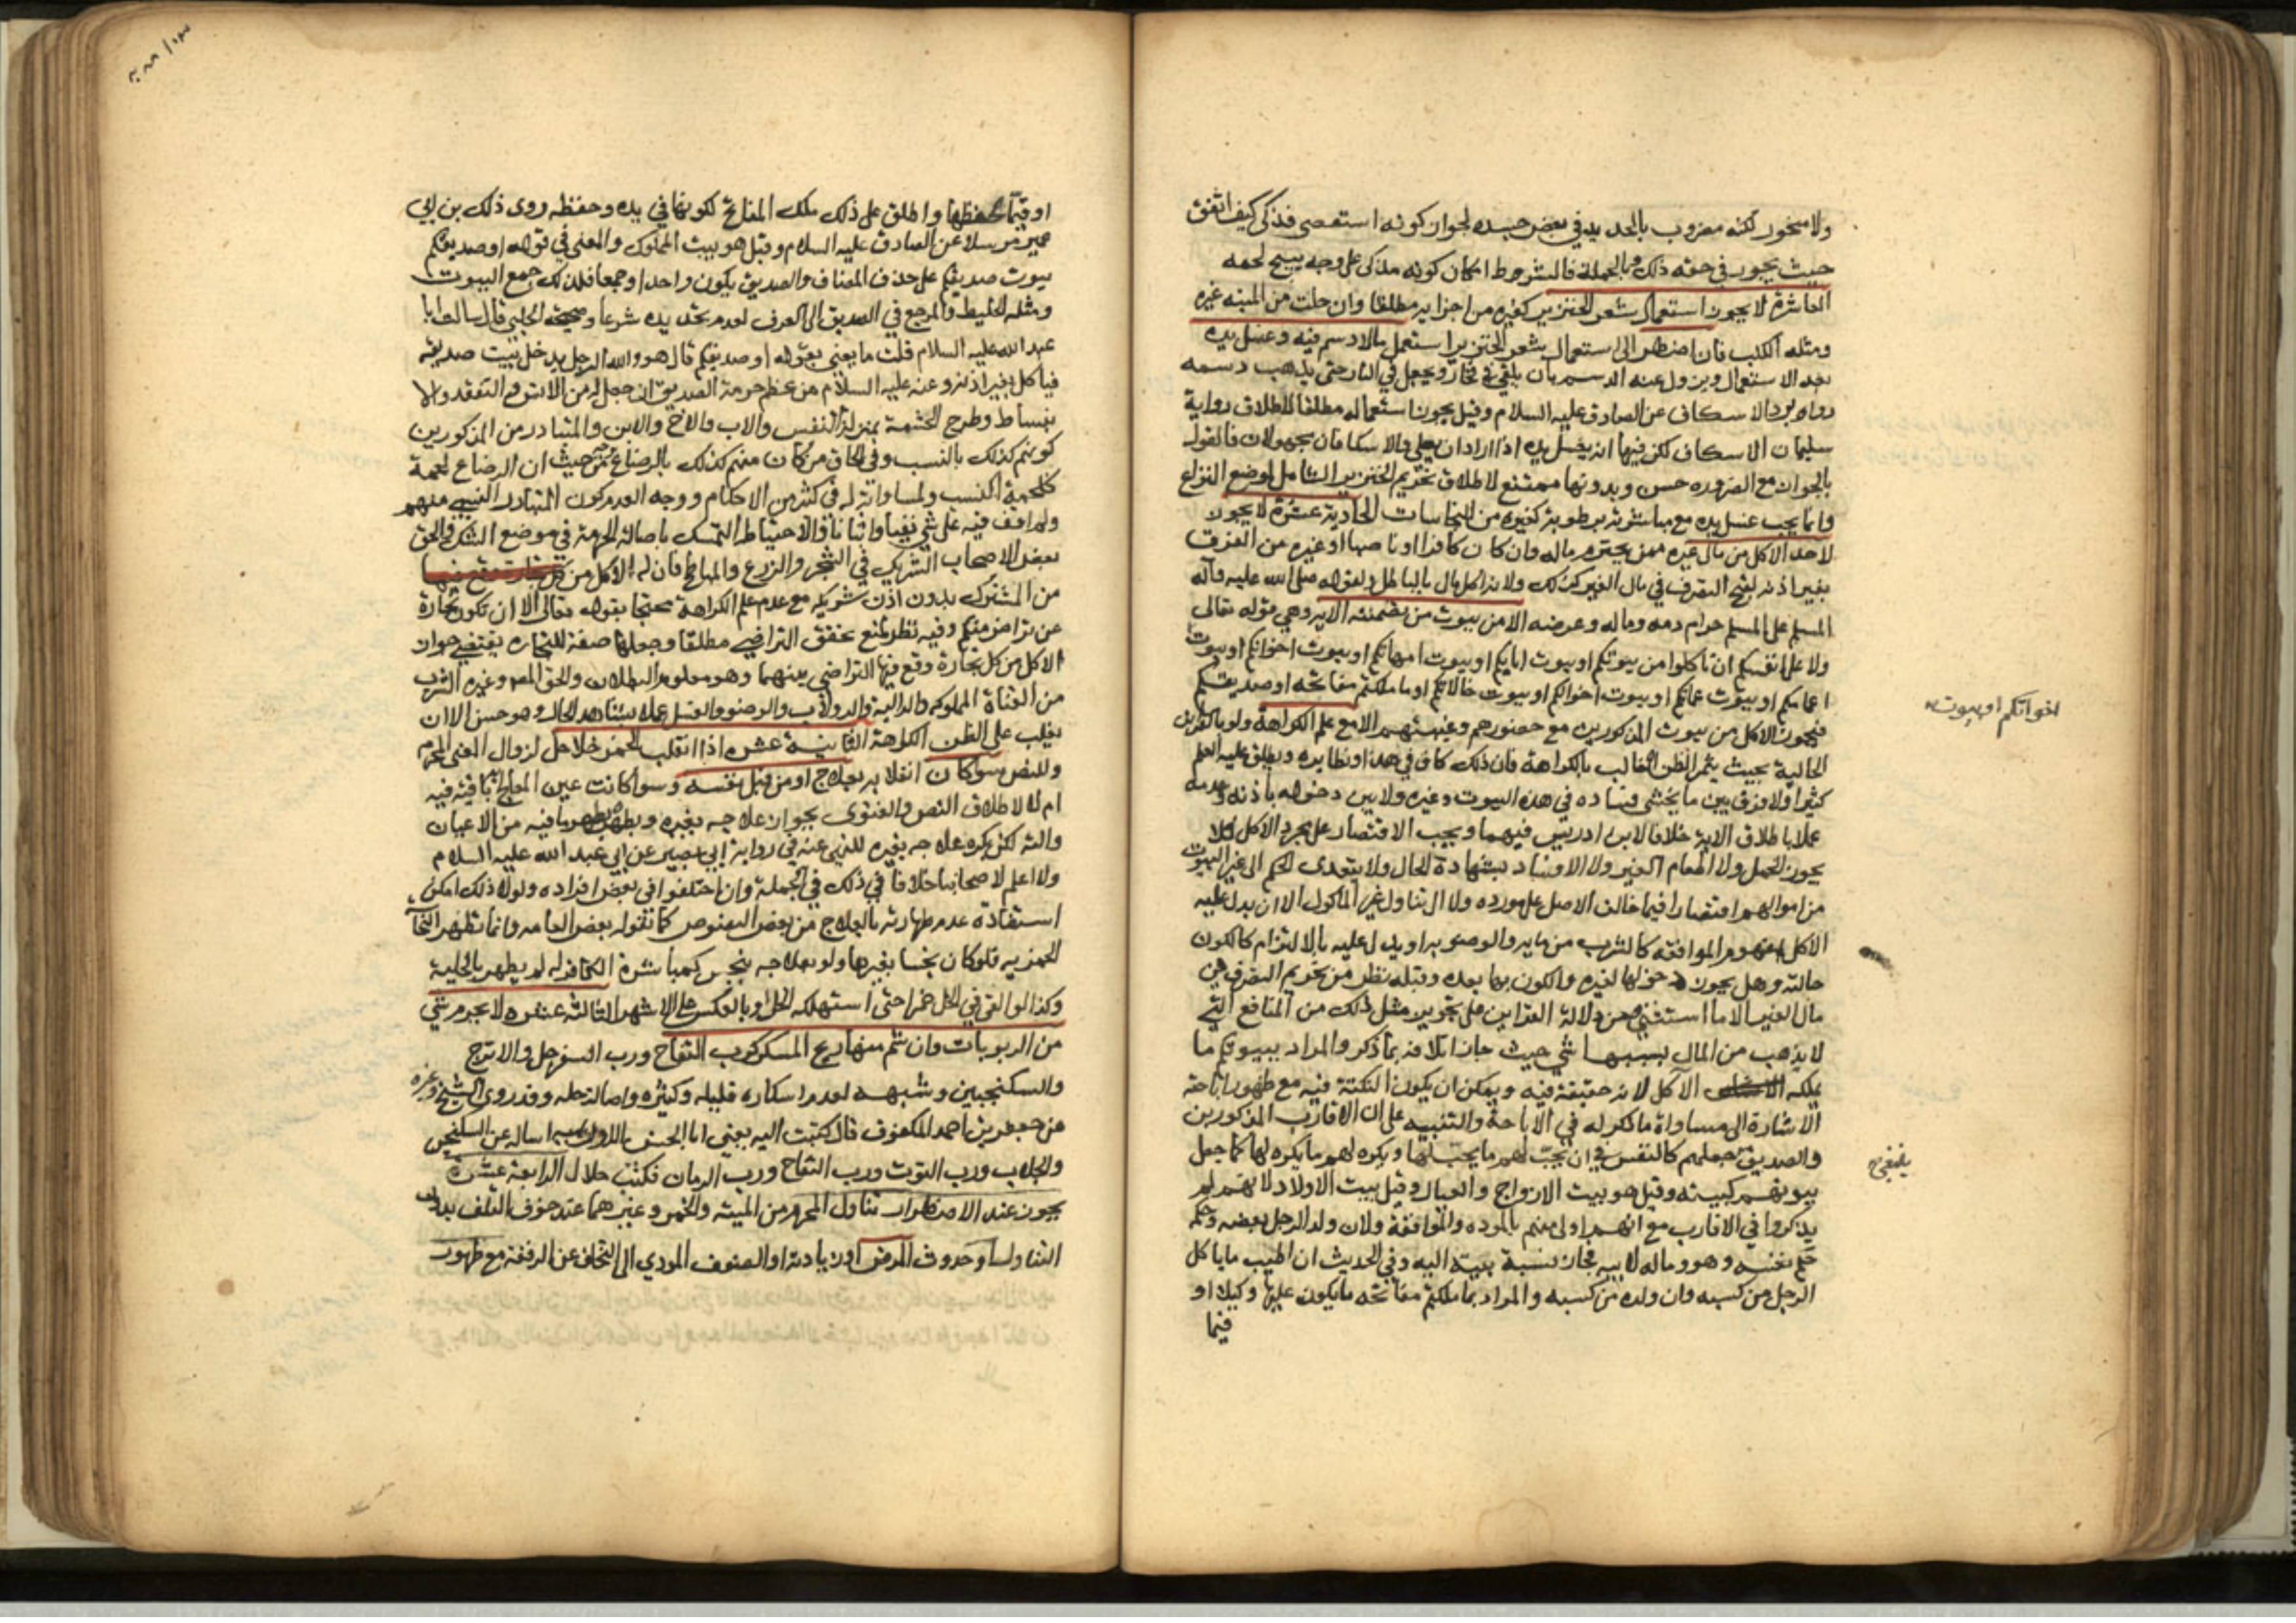 ولا منحور لكنه مضروب بالحديد في بعض جسده لجواز كونه استعصى فذكي كيف اتفق
حيث يجوز في حقه ذلك وبالجملة فالشرط امكان كونه مذكى على وجه يبيح لحمه
العاشرة لا يجوز استعمال شعر الخنزير كغيره من اجزايه مطلقا وان حلت من الميته غيره
ومثله الكلب فان اضطر الى استعمال شعر الخنزير استعمل ما لا دسم فيه وغسل يده
بعد الاستعمال ويزول عنه الدسم بان يلقى في فخار ويجعل في النار حتى يذهب دسمه
رواه برد الاسكاف عن الصادق عليه السلام وقيل يجوز استعماله مطلقا لاطلاق رواية
سليمان الاسكاف لكن فيها انه يغسل يده اذا اراد ان يصلي والاسكافان مجهولان فالقول
بالجواز مع الضروره حسن وبدونها ممتنع لاطلاق تحريم الخنزير الشامل لموضع النزاع
وانما يجب غسل يده مع مباشرته برطوبة كغيره من النجاسات الحادية عشرة لا يجوز
لاحد الاكل من مال غيره ممن يحترم ماله وان كان كافرا او ناصبيا او غيره من الفرق
بغير اذنه لقبح التصرف في مال الغير كذلك ولانه اكل مال بالباطل ولقوله صلى الله عليه وآله
المسلم على المسلم حرام دمه وماله وعرضه الا من بيوت من تضمنته الايه وهي قوله تعالى
ولا على انفسكم ان تاكلوا من بيوتكم او بيوت ابايكم او بيوت امهاتكم او بيوت اخوانكم او بيوت
اخواتكم او بيوت
اعمامكم او بيوت عماتكم او بيوت اخوالكم او بيوت خالاتكم او ما ملكتم مفاتحه او صديقكم
فيجوز الاكل من بيوت المذكورين مع حضورهم وغيبتهم الا مع علم الكراهة ولو بالقراين
الحالية بحيث يثمر الظن الغالب بالكراهة فان ذلك كاف في هذا ونظايره ويطلق عليه العلم
كثيرا ولا فرق بين ما يخشى فساده في هذه البيوت وغيره ولا بين دخوله باذنه وعدمه
عملا باطلاق الاية خلافا لابن ادريس فيهما ويجب الاقتصار على مجرد الاكل فلا
يجوز الحمل ولا اطعام الغير ولا الافساد بشهادة الحال ولا يتعدى الحكم الى غير البيوت
من اموالهم اقتصارا فيما خالف الاصل على مورده ولا الى تناول غير الماكول الا ان يدل عليه
الاكل بمفهوم الموافقه كالشرب من مايه والوضوء به او يدل عليه بالالتزام كالكون
حالته وهل يجوز دخولها لغيره والكون بها بعده وقبله نظر من تحريم التصرف في
مال الغير الا ما استثني ومن دلالة القراين على تجويز مثل ذلك من المنافع التي
لا يذهب من المال بسببها شي حيث جاز اتلافه بما ذكر والمراد ببيوتكم ما
يملكه الآكل لانه حقيقة فيه ويمكن ان يكون النكتة فيه مع ظهور اباحته
الاشارة الى مساواة ما ذكر له في الاباحة والتنبيه على ان الاقارب المذكورين
والصديق جعلهم كالنفس في ان يحب لهم ما يحب لها ويكره لهم ما يكره لها كما جعل
ينبغي
بيوتهم كبيته وقيل هو بيت الازواج والعيال وقيل بيت الاولاد لانهم لم
يذكروا في الاقارب مع انهم اولى منهم بالموده والموافقة ولان ولد الرجل بعضه وحكمه
حكم نفسه وهو وماله لابيه فجاز نسبة بيته اليه وفي الحديث ان اطيب ما ياكل
الرجل من كسبه وان ولده من كسبه والمراد بما ملكتم مفاتحه ما يكون عليها وكيلا او
قيما
او قيما يحفظها واطلق على ذلك ملك المفاتح لكونها في يده وحفظه روى ذلك بن ابي
عمير مرسلا عن الصادق عليه السلام وقيل هو بيت المملوك والمعنى في قوله او صديقكم
بيوت صديقكم على حذف المضاف والصديق يكون واحدا وجمعا فلذلك جمع البيوت
ومثله الخليط والمرجع في الصديق الى العرف لعدم تحديده شرعا وصحيحة الحلبي قال سالت ابا
عبد الله عليه السلام قلت ما يعني بقوله او صديقكم قال هو والله الرجل يدخل بيت صديقه
فياكل بغير اذنه وعنه عليه السلام من عظم حرمة الصديق ان جعل له من الانس والتفقد والا
نبساط وطرح الحشمة بمنزلة النفس والاب والاخ والابن والمتبادر من المذكورين
كونهم كذلك بالنسب وفي الحاق من كان منهم كذلك بالرضاع من حيث ان الرضاع لحمة
كلحمة النسب ولمساواته له في كثير من الاحكام ووجه العدم كون المتبادر النسبي منهم
ولم اقف فيه على شي نفيا واثباتا والاحتياط التمسك باصالة الحرمة في موضع الشك والحق
بعض الاصحاب الشريك في الشجر والزرع والمباطخ فان له الاكل من
من المشترك بدون اذن شريكه مع عدم علم الكراهة محتجا بقوله تعالى الا ان تكون تجارة
عن تراض منكم وفيه نظر لمنع تحقق التراضي مطلقا وجعلها صفة للتجاره يقتضي جواز
الاكل من كل تجارة وقع فيها التراضي بينهما وهو معلوم البطلان والحق المص وغيره الشرب
من القناة المملوكه والدالية والدولاب والوضوء والغسل عملا بشاهد الحال وهو حسن الا ان
يغلب على الظن الكراهة الثانية عشره اذا انقلب الخمر خلا حل لزوال المعنى المحرم
وللنص سوا كان انقلابه بعلاج او من قبل نفسه وسوا كانت عين المعالج باقية فيه
ام لا لاطلاق النص والفتوى بجواز علاجه بغيره وبطهره يطهر ما فيه من الاعيان
والته لكن يكره علاجه بغيره للنهي عنه في رواية ابي بصير عن ابي عبد الله عليه السلام
ولا اعلم لاصحابنا خلافا في ذلك في الجملة وان اختلفوا في بعض افراده ولولا ذلك امكن
استفادة عدم طهارته بالعلاج من بعض النصوص كما تقوله بعض العامه وانما تطهر النجاسة
الخمريه فلو كان نجسا بغيرها ولو بعلاجه بنجس كمباشرة الكافر له لم يطهر بالخلية
وكذا لو القي في الخل خمر حتى استهلكه الخل او بالعكس على الاشهر الثالثة عشره لا يحرم شي
من الربوبات وان شم منها ريح المسكر كرب التفاح ورب السفرجل والاترج
والسكنجبين وشبهه لعدم اسكاره قليله وكثيره واصالة حله وقد روى الشيخ وغيره
عن جعفر بن احمد المكفوف قال كتبت اليه يعني ابا الحسن الاول اساله عن السكنجبين
والجلاب ورب التوت ورب التفاح ورب الرمان فكتب حلال الرابعة عشرة
يجوز عند الاضطرار تناول المحرم من الميته والخمر وغيرهما عند خوف التلف بدون
التناول او حدوث المرض او زيادته او الضعف المودي الى التخلف عن الرفقة مع ظهور